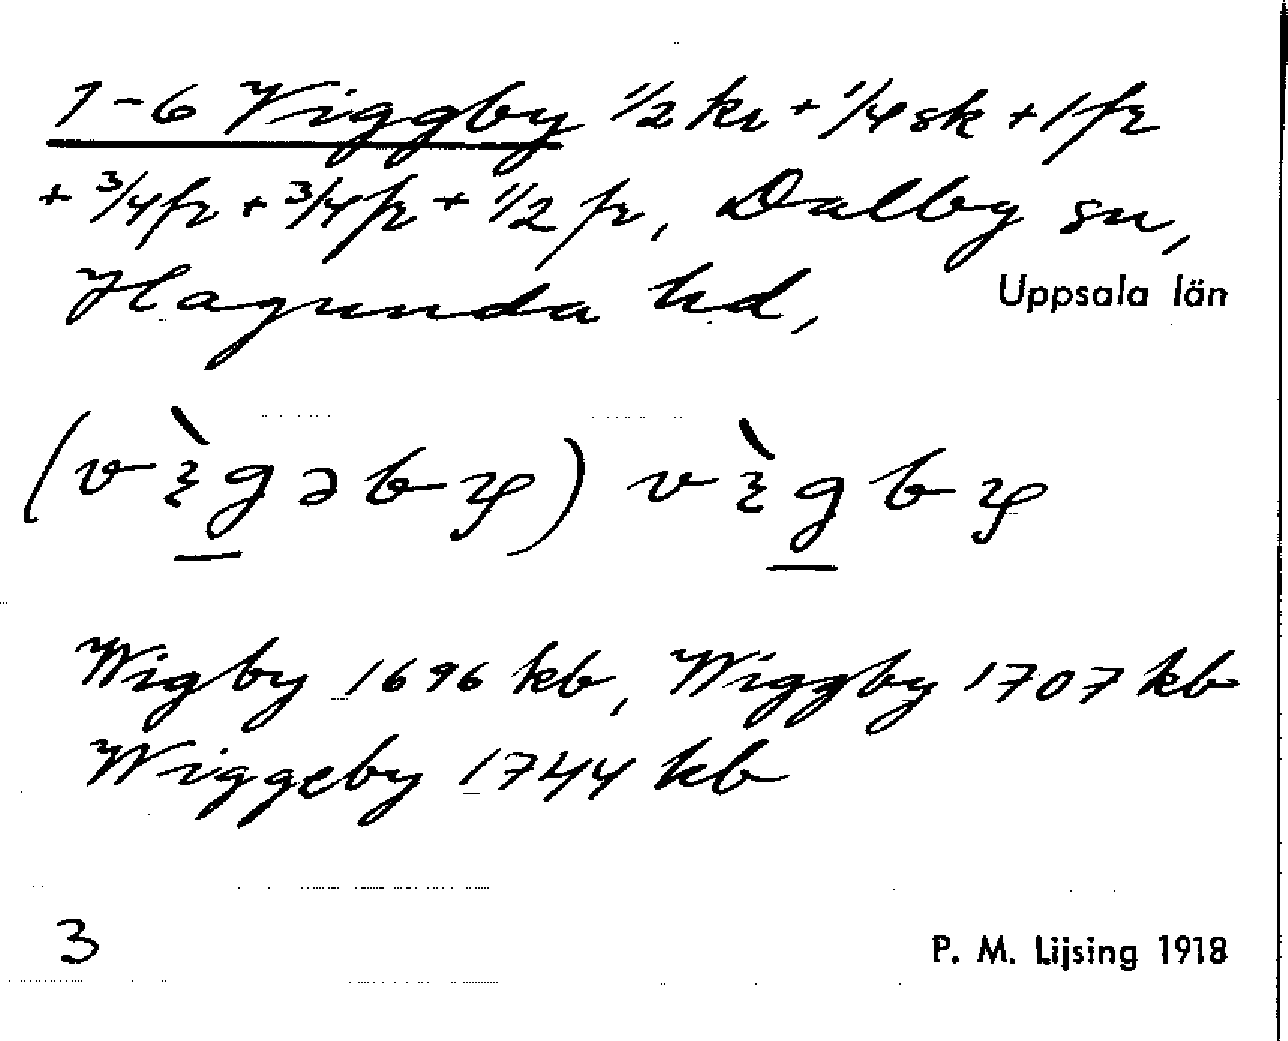 1-6 Viggby 1/2 kr + 1/4 sk + 1 fr
+ 3/4 fr + 3/4 fr + 1/2 fr, Dalby sn,
Hagunda hd, Uppsala län
Wigby 1696 kb, Wiggby 1707 kb
Wiggeby 1744 kb
3 P. M. Lijsing 1918